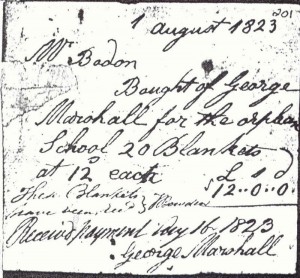 201
1 august 1823
Mr Bodon
Bought of George
Marshall for the orphan
School 20 Blankets
at 12 each £ s d
12..0..0
These Blankets
have been
Received Payment 16 1823
George Marshall